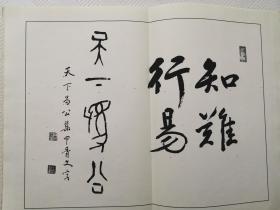 知難
行易
天下為公
天下為公集甲骨文字